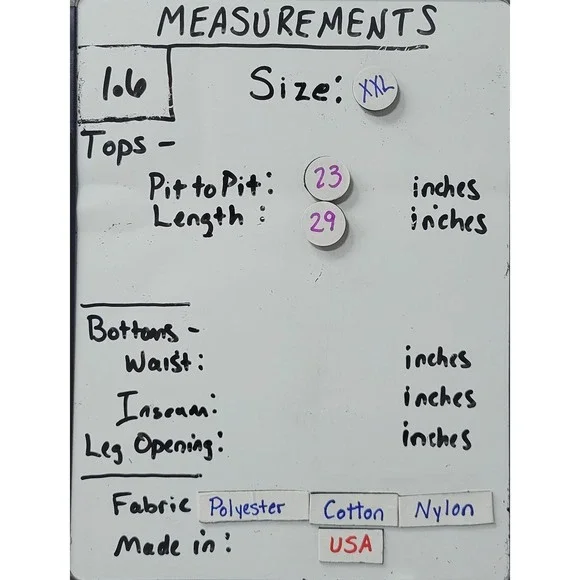 MEASUREMENTS
1.6 Size: XXL
Tops -
Pit to Pit: 23 inches
Length: 29 inches
Bottoms -
Waist: inches
Inseam: inches
Leg Opening: inches
Fabric Polyester Cotton Nylon
Made in: USA